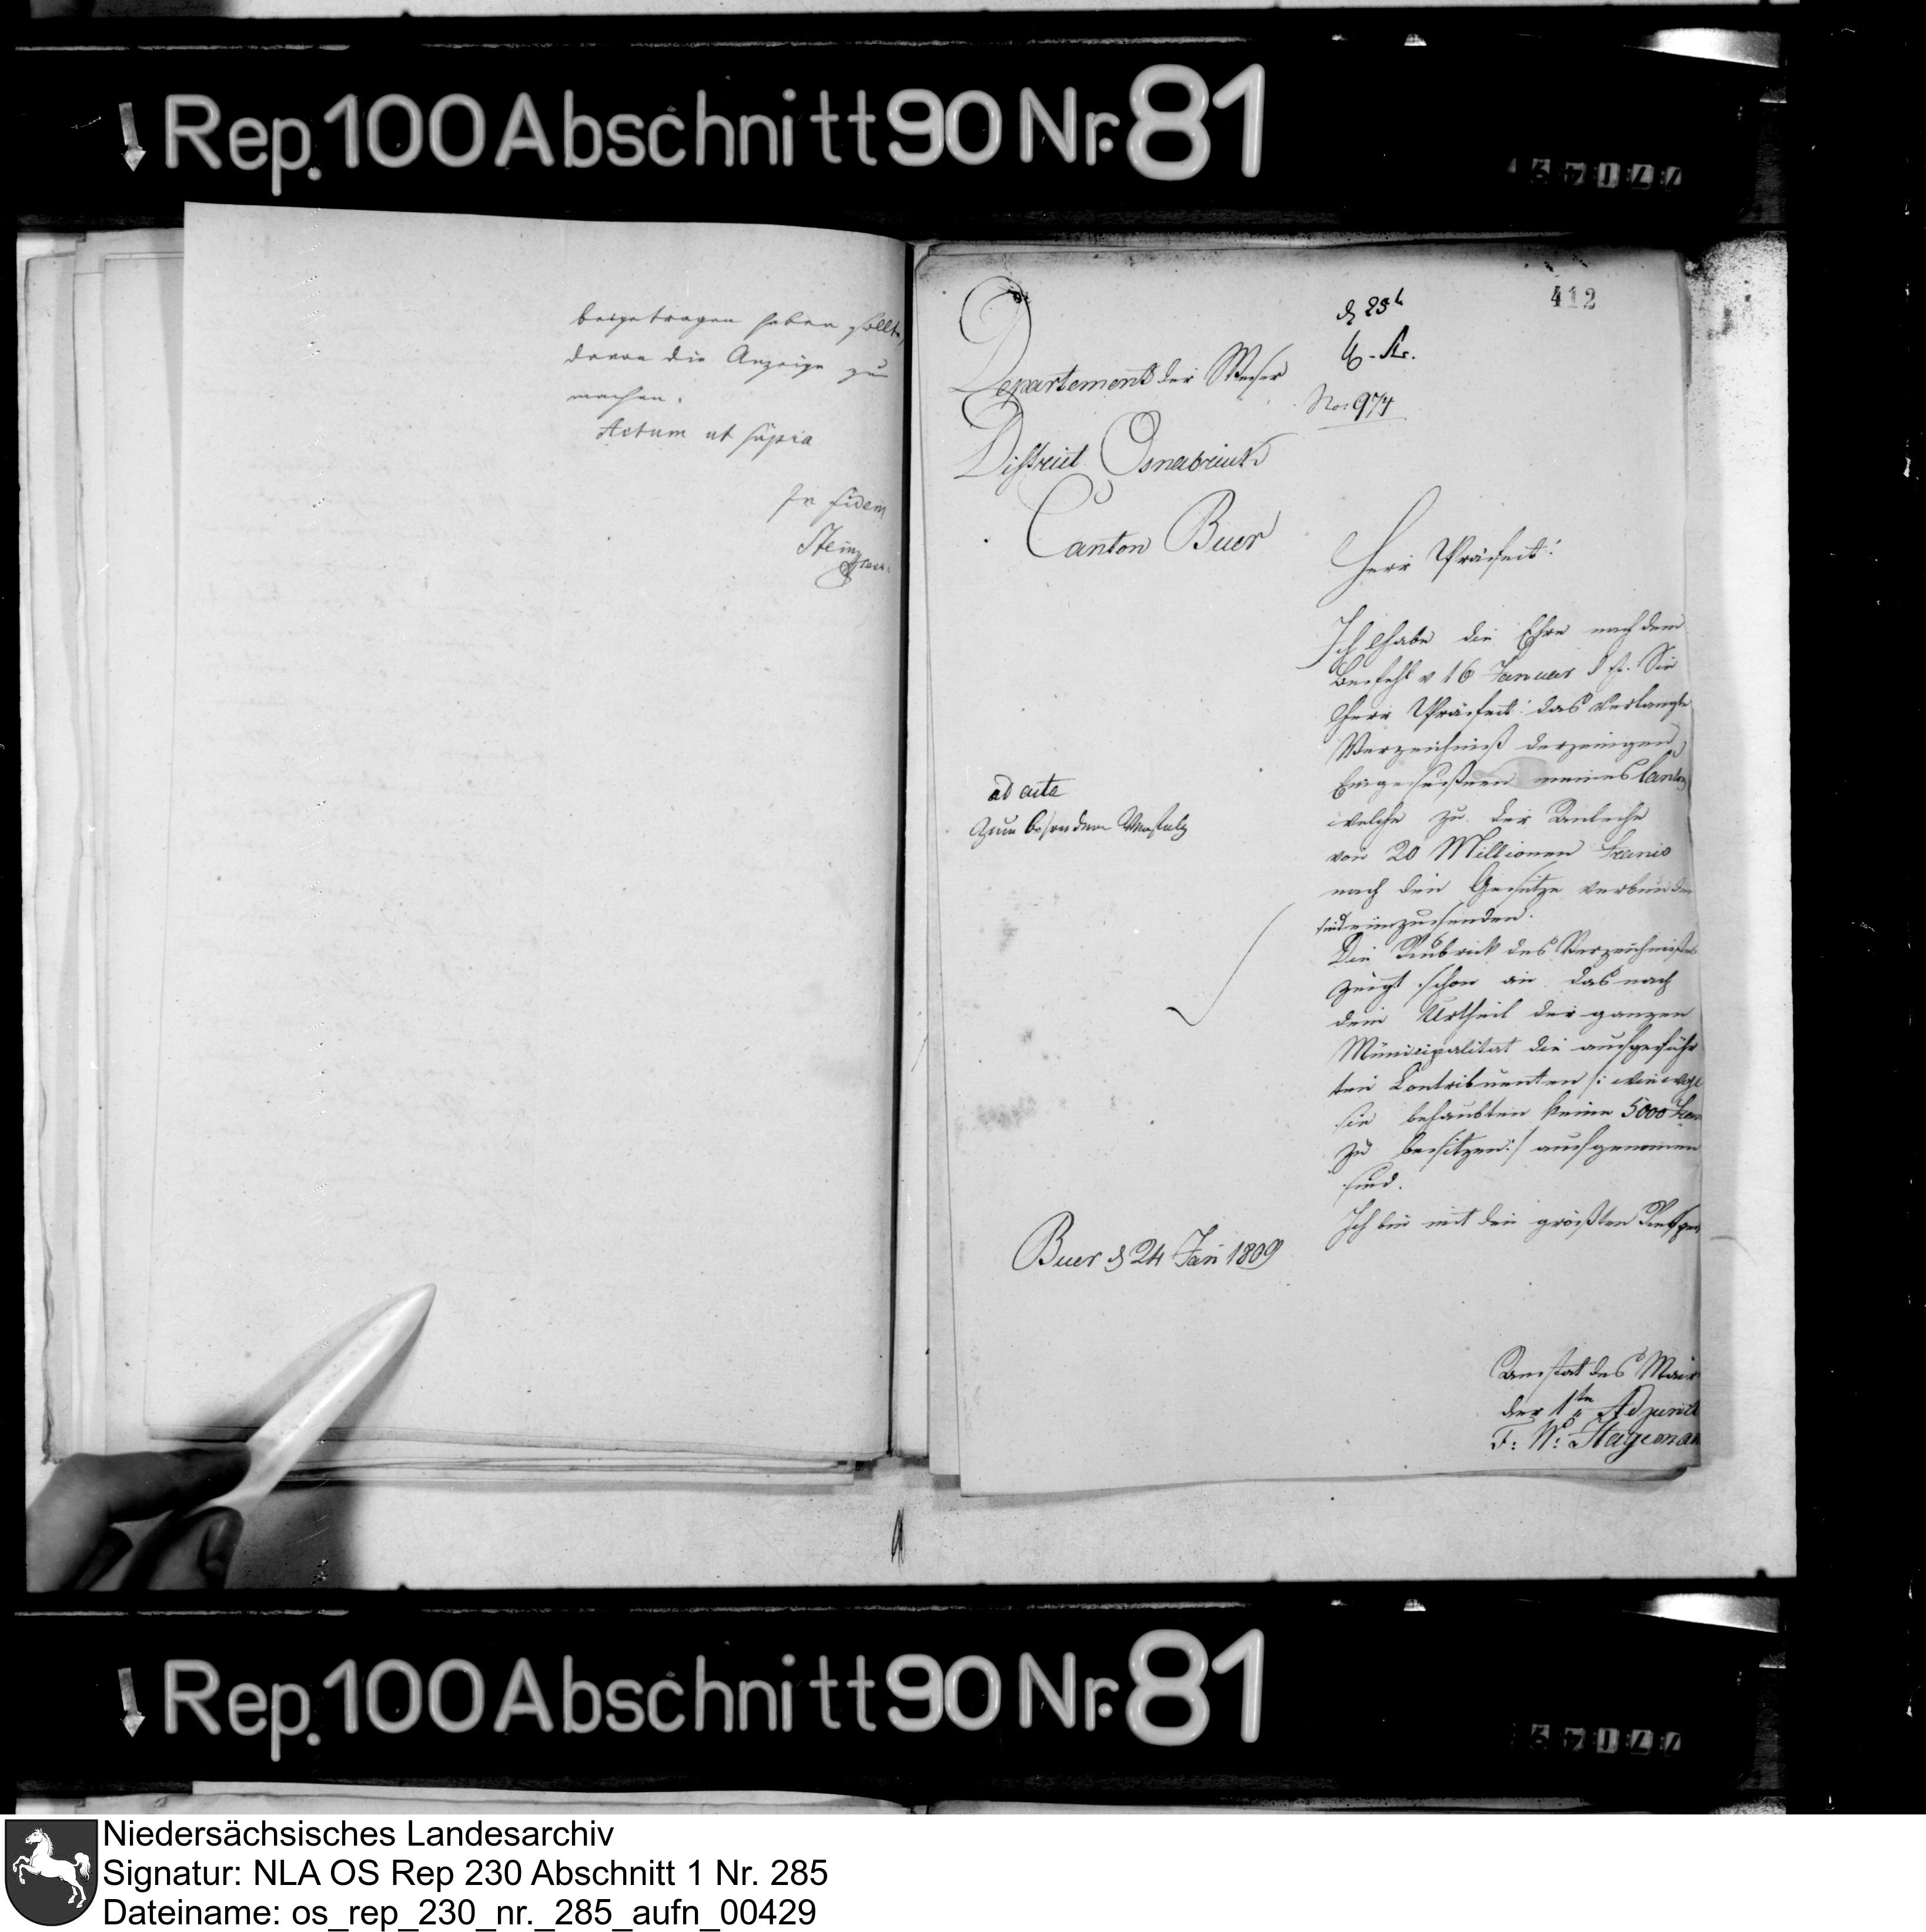 Rep. 100 Abschnitt 90 Nr. 81
beigetragen haben sollte,
davon die Anzeige zu
machen.
Actum ut supra
In fidem
412
d 25t
No: 974
Departement der Weser
District Osnabrück
Canton Buer
Herr Präfect!
Ich habe die Ehre nach dem
Befehl v 16 Januar d J. Sie
Herr Präfect! das verlangte
Verzeichniß derjenigen
Eingesessenen meines Cantons
welche zu der Anleihe
von 20 Millionen Francs
nach den Gesetze verbunden
sind einzusenden.
Die Rubrick des Verzeichnißes
zeigt schon an das nach
dem Urtheil der ganzen
Municipalitat die aufgeführ
ten Contribuenten /: wie wohl
sie behaubten keine 5000 Fran
zu besitzen :/ aufgenomen
sind.
Ich bin mit den größten
ad acta
Buer d 24 Jan 1809
Anstat des Mair
der 1te Adjunct
F: W: Stageman
Rep. 100 Abschnitt 90 Nr. 81
Niedersächsisches Landesarchiv
Signatur: NLA OS Rep 230 Abschnitt 1 Nr. 285
Dateiname: os_rep_230_nr._285_aufn_00429